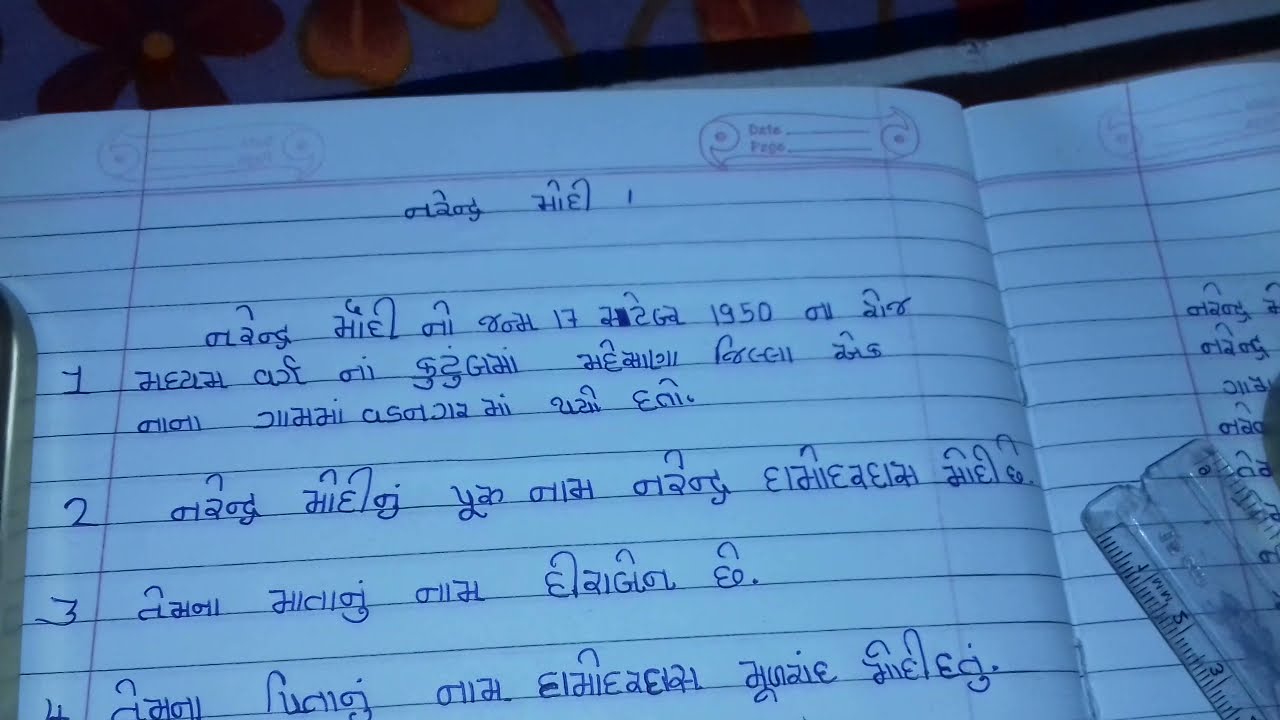 Date
Page
નરેન્દ્ર મોદી ।
નરેન્દ્ર મોદી નો જન્મ 17 સપ્ટેબર 1950 ના રોજ
1 મધ્યમ વર્ગ નાં કુટુંબમાં મહેસાણા જિલ્લા એક
નાના ગામમાં વડનગર માં થયો હતો.
2 નરેન્દ્ર મોદીનું પૂરૂ નામ નરેન્દ્ર દામોદરદાસ મોદી છે.
3 તેમના માતાનું નામ હીરાબેન છે.
4 તેમના પિતાનું નામ દામોદરદાસ મૂળચંદ મોદી હતું.
નરેન્દ્ર
નરેન્દ્ર